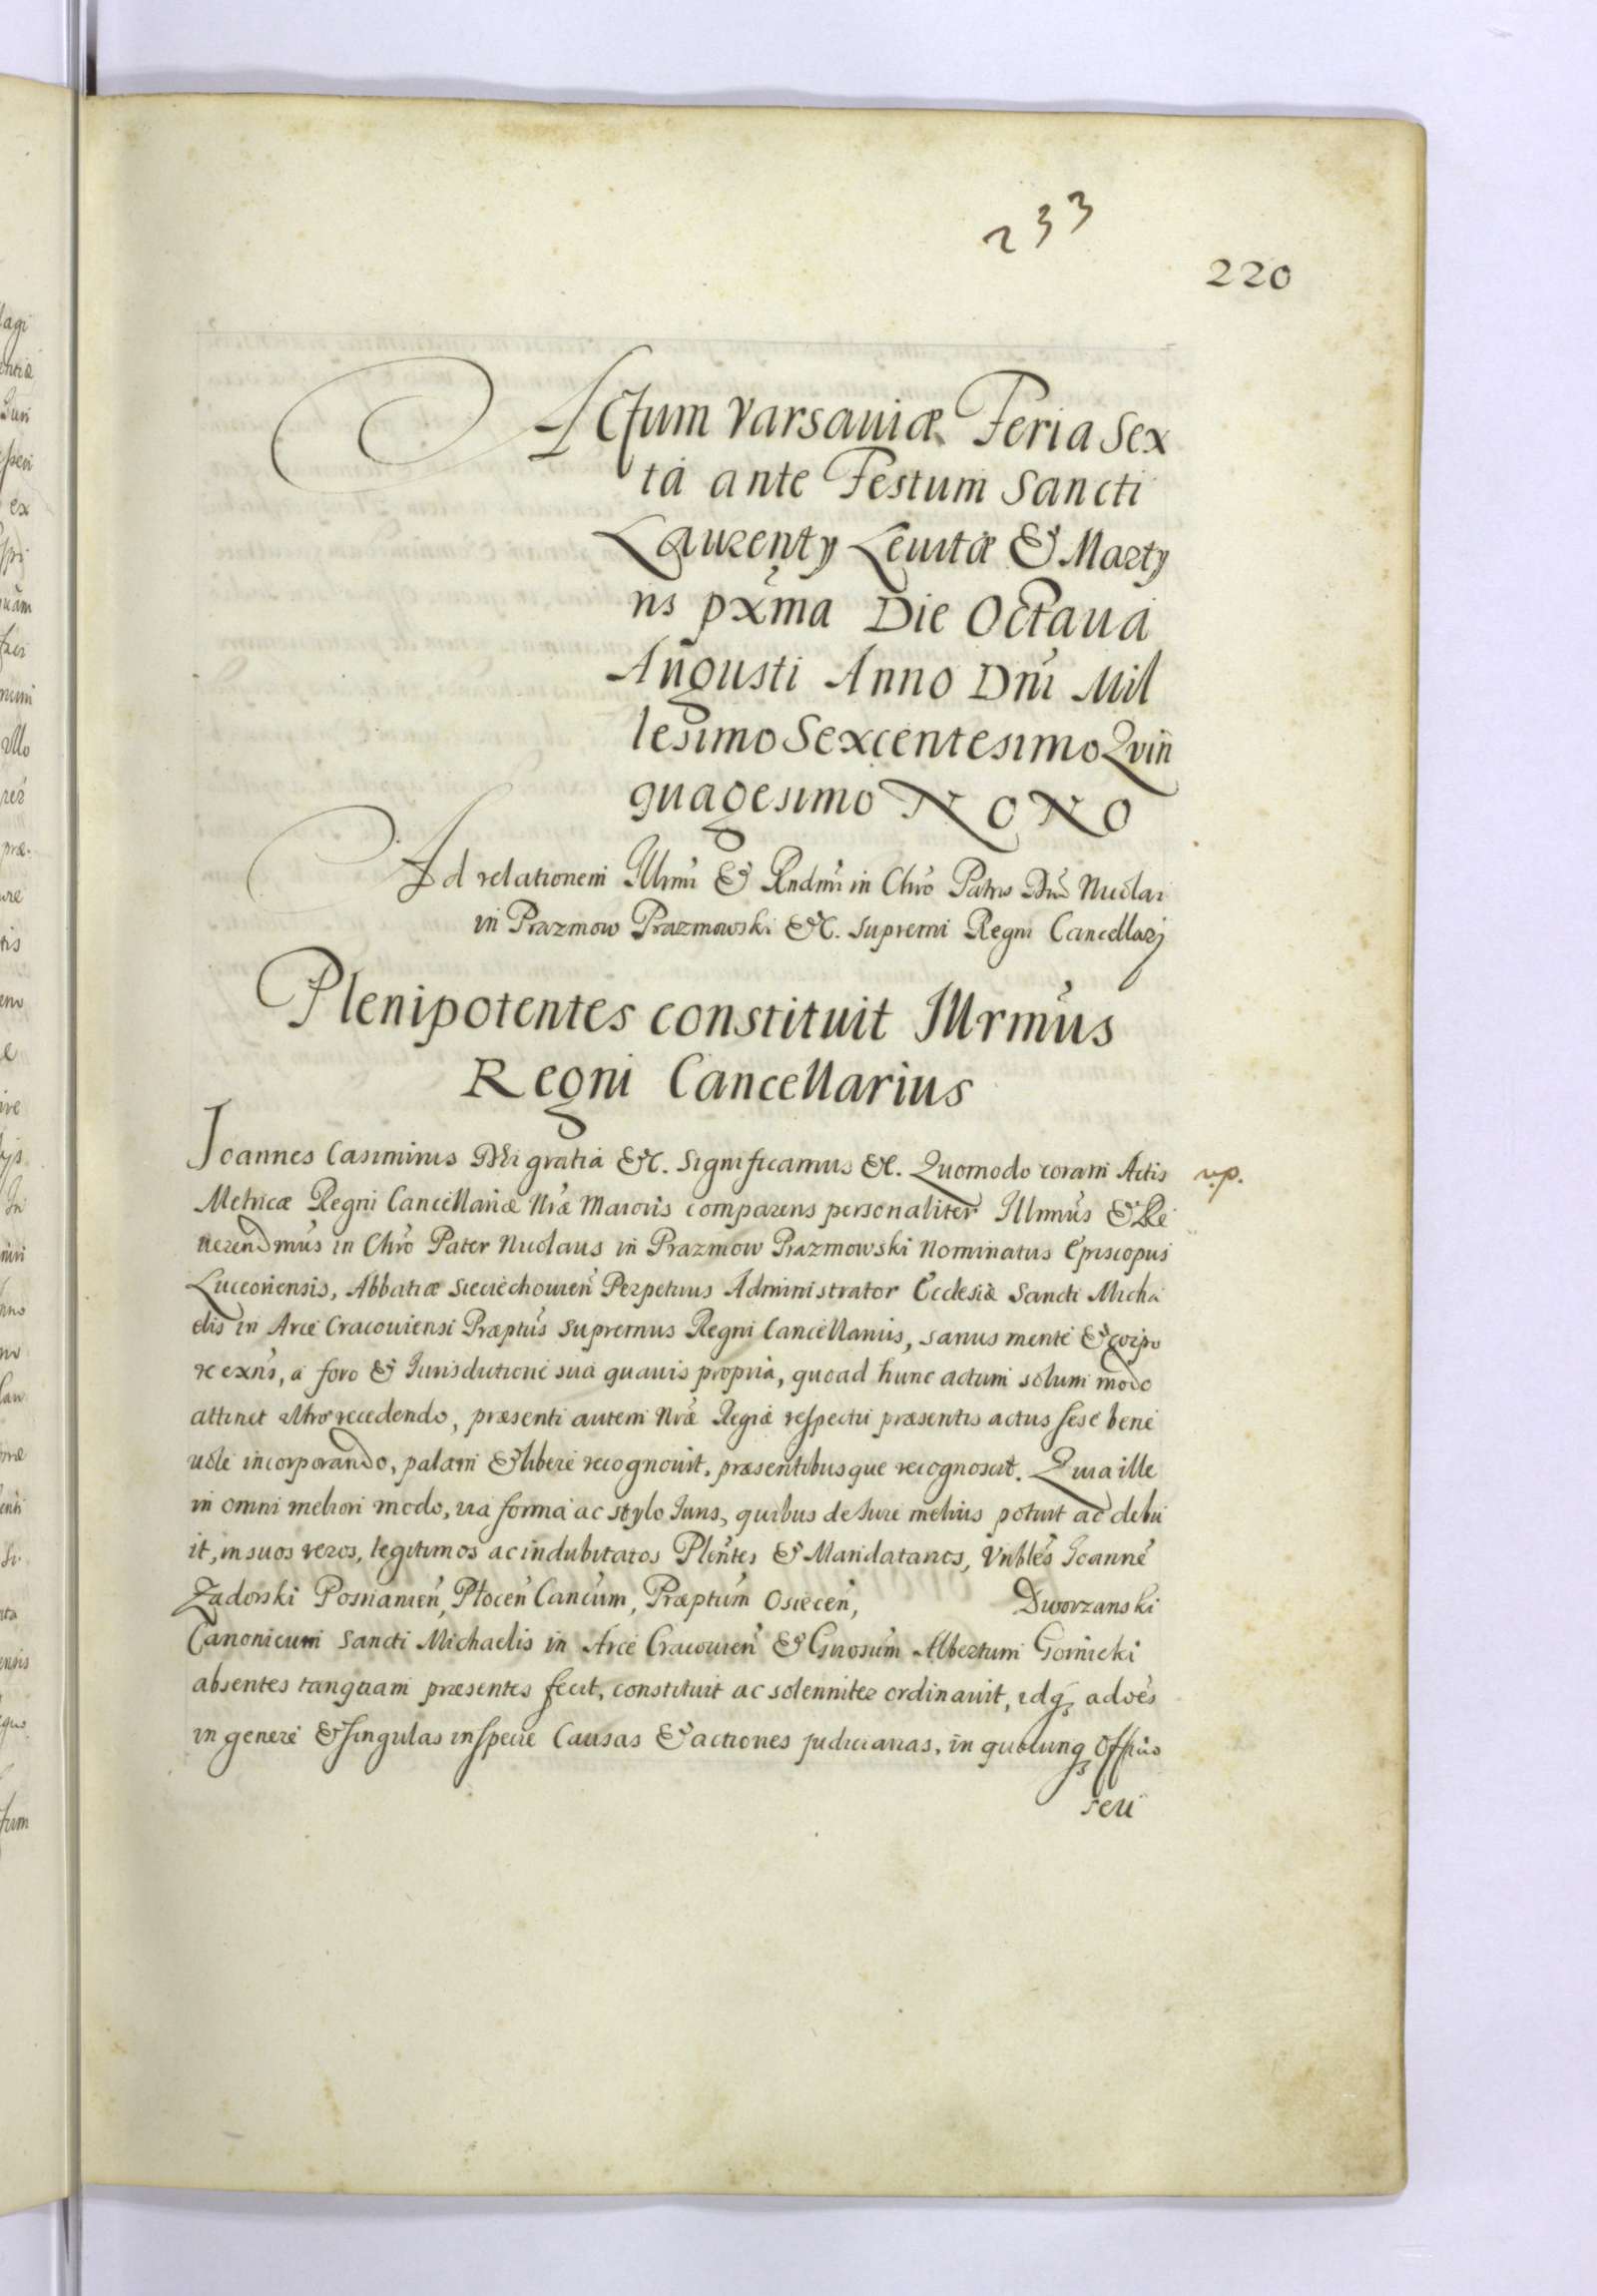 233
220
Actum Varsauiæ Feria Sex
ta ante Festum Sancti
Laurenty Leuitæ & Marty
ris pxma Die Octaua
Augusti Anno Dni Mil
lesimo Sexcentesimo Qvin
quagesimo NoNo
Ad relationem Illrmi & Rndmi in Chro Patris Dni Nicolai
in Prazmow Prazmowski &c. Supremi Regni Cancellarj
Plenipotentes constituit Illrmus
Regni Cancellarius
Joannes Casimirus Dei gratia &c. Significamus &c. Quomodo coram Actis
Metricæ Regni Cancellariæ Nræ Maioris comparens personaliter Illrmus & Re
uerendmus in Chro Pater Nicolaus in Prazmow Prazmowski Nominatus Episcopus
Luceoriensis, Abbatiæ Sieciechouien Perpetuus Administrator Ecclesiæ Sancti Micha
elis in Arce Cracouiensi Præptus Supremus Regni Cancellarius, sanus mente & corpo
re exns, a foro & Jurisdictione sua quauis propria, quoad hunc actum solum modo
attinet ultro recedendo, præsenti autem Nræ Regiæ respectu præsentis actus sese bene
uole incorporando, palam & libere recognouit, præsentibusque recognoscit. Quia ille
in omni meliori modo, uia forma ac stylo Juris, quibus de Jure melius potuit ac debu
it, in suos veros, legitimos ac indubitatos Plentes & Mandatarios, Vnbles Joanne
Zadorski Posnanien, Płocen Cancum, Præptum Osiecen, Dworzanski
Canonicum Sancti Michaelis in Arce Cracouien & Gnosum Albertum Gornicki
absentes tanquam præsentes fecit, constituit ac solenniter ordinauit, idq adoes
in genere & singulas in specie Causas & actiones judiciarias, in quocunq Officio
seu
v.p.